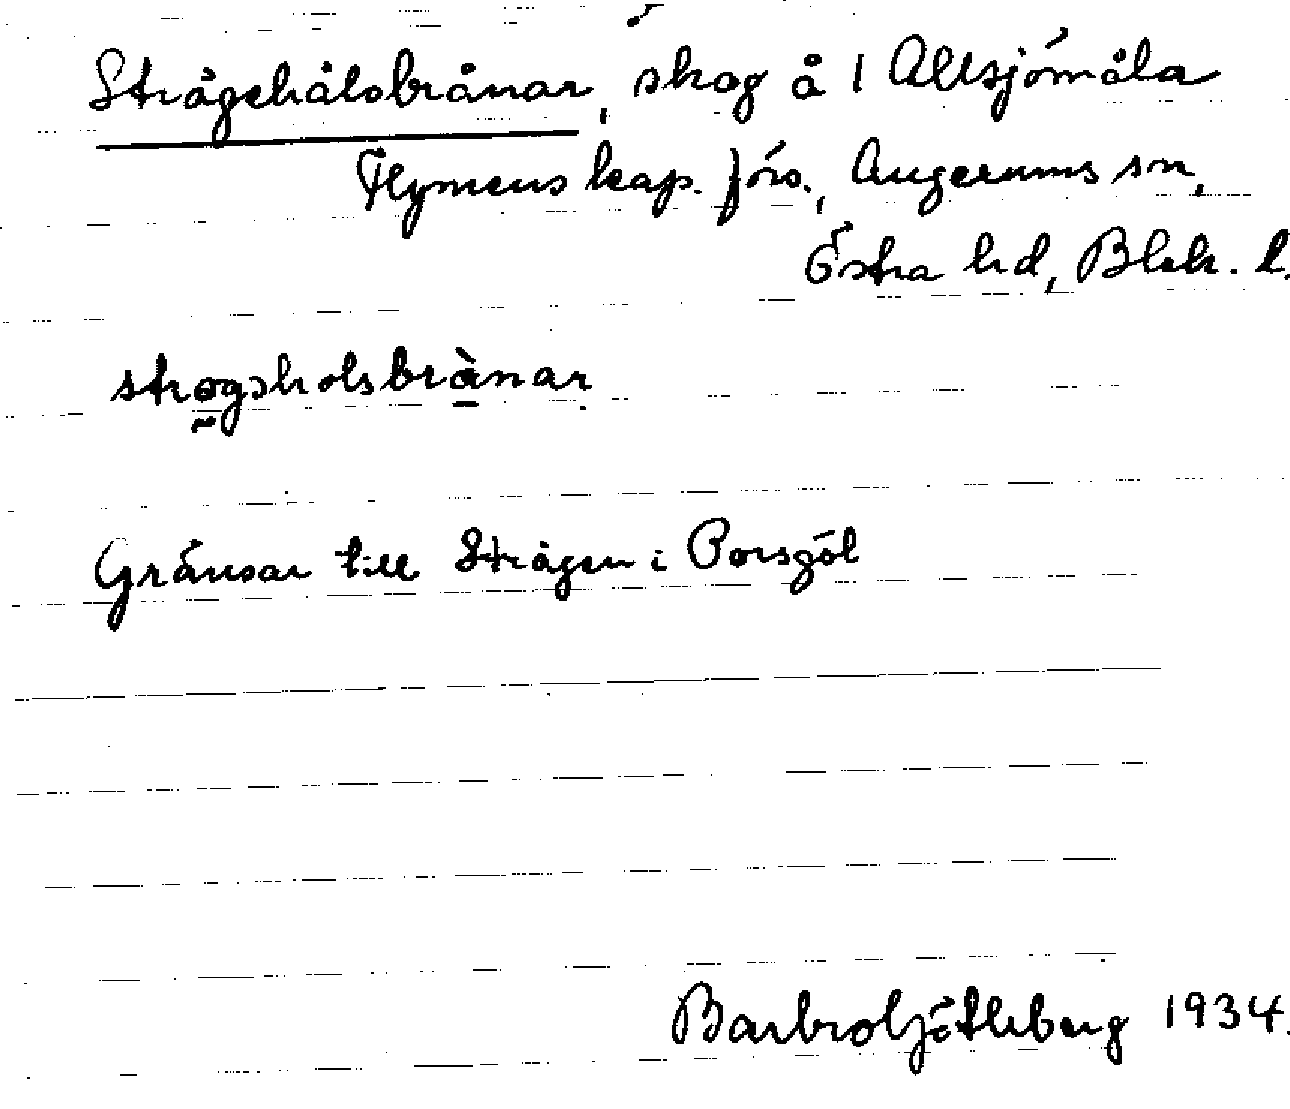 Strågehålsbrånar, skog å 1 Allsjömåla
Flymens kap. förs., Augerums sn,
Östra hd, Blek. l.
strogsholsbrànar
Gränsar till Strågen i Porsgöl
Barbro Götlberg 1934.